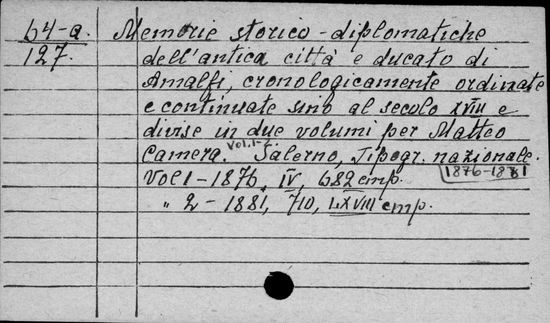 64-a.
127.
Memorie storico-diplomatiche
dell'antica città e ducato di
Amalfi, cronologicamente ordinate
e continuate sino al secolo XVIII e
divise in due volumi per Matteo
Camera. Vol. 1-2 Salerno, Tipogr. nazionale.
1876-1881
Vol 1 - 1876, IV, 682 cmp.
" 2 - 1881, 710, LXVIII cmp.